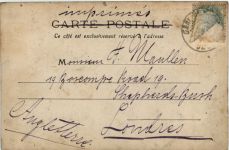 imprimés
CARTE POSTALE
Ce côté est exclusivement réservé à l'adresse
Monsieur F. Maullen
19 Boscombe Road 19.
Shepherds Bush
Londres
Angleterre